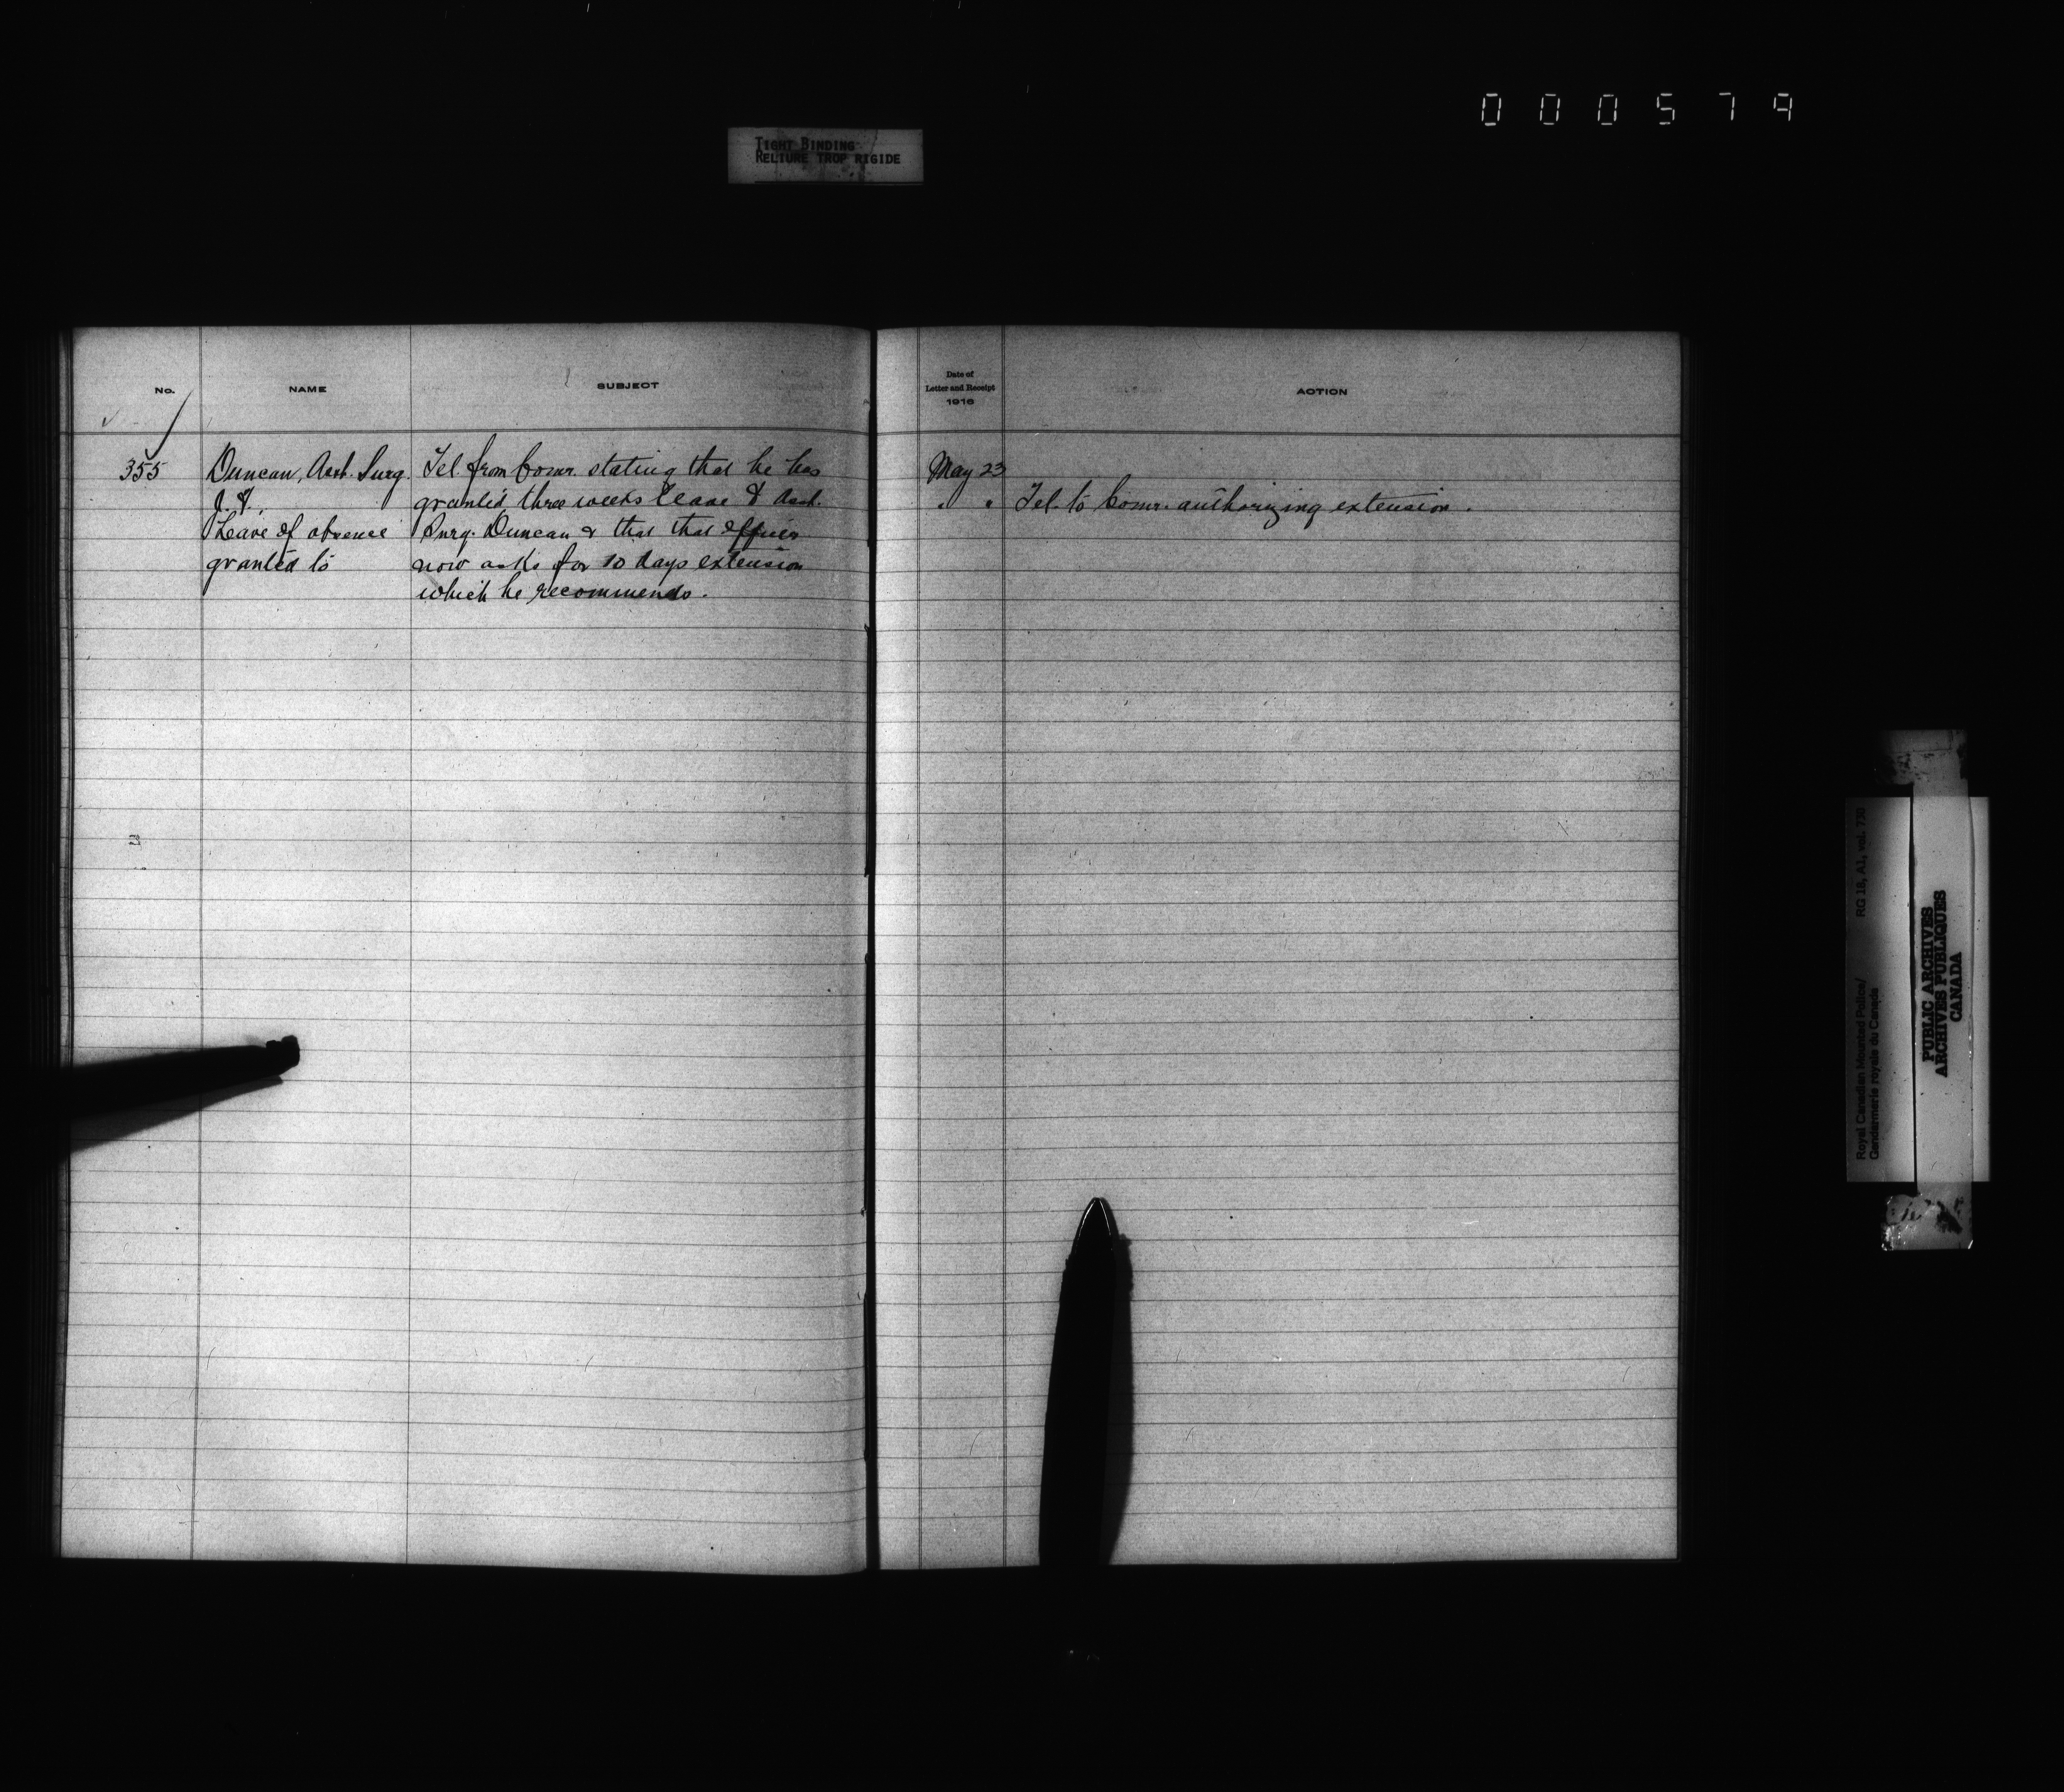 000579
TIGHT BINDING
RELIURE TROP RIGIDE
No.
NAME
SUBJECT
355
Duncan, Asst. Surg.
J. F.,
Leave of absence
granted to
Tel. from Comr. stating that he has
granted three weeks leave to Asst.
Surg. Duncan & that that officer
now asks for 10 days extension
which he recommends.
Date of
Letter and Receipt
1916
ACTION
May 23
" " Tel. to Comr. authorizing extension.
Royal Canadian Mounted Police/ RG 18, A1, vol. 730
Gendarmerie royale du Canada
PUBLIC ARCHIVES
ARCHIVES PUBLIQUES
CANADA